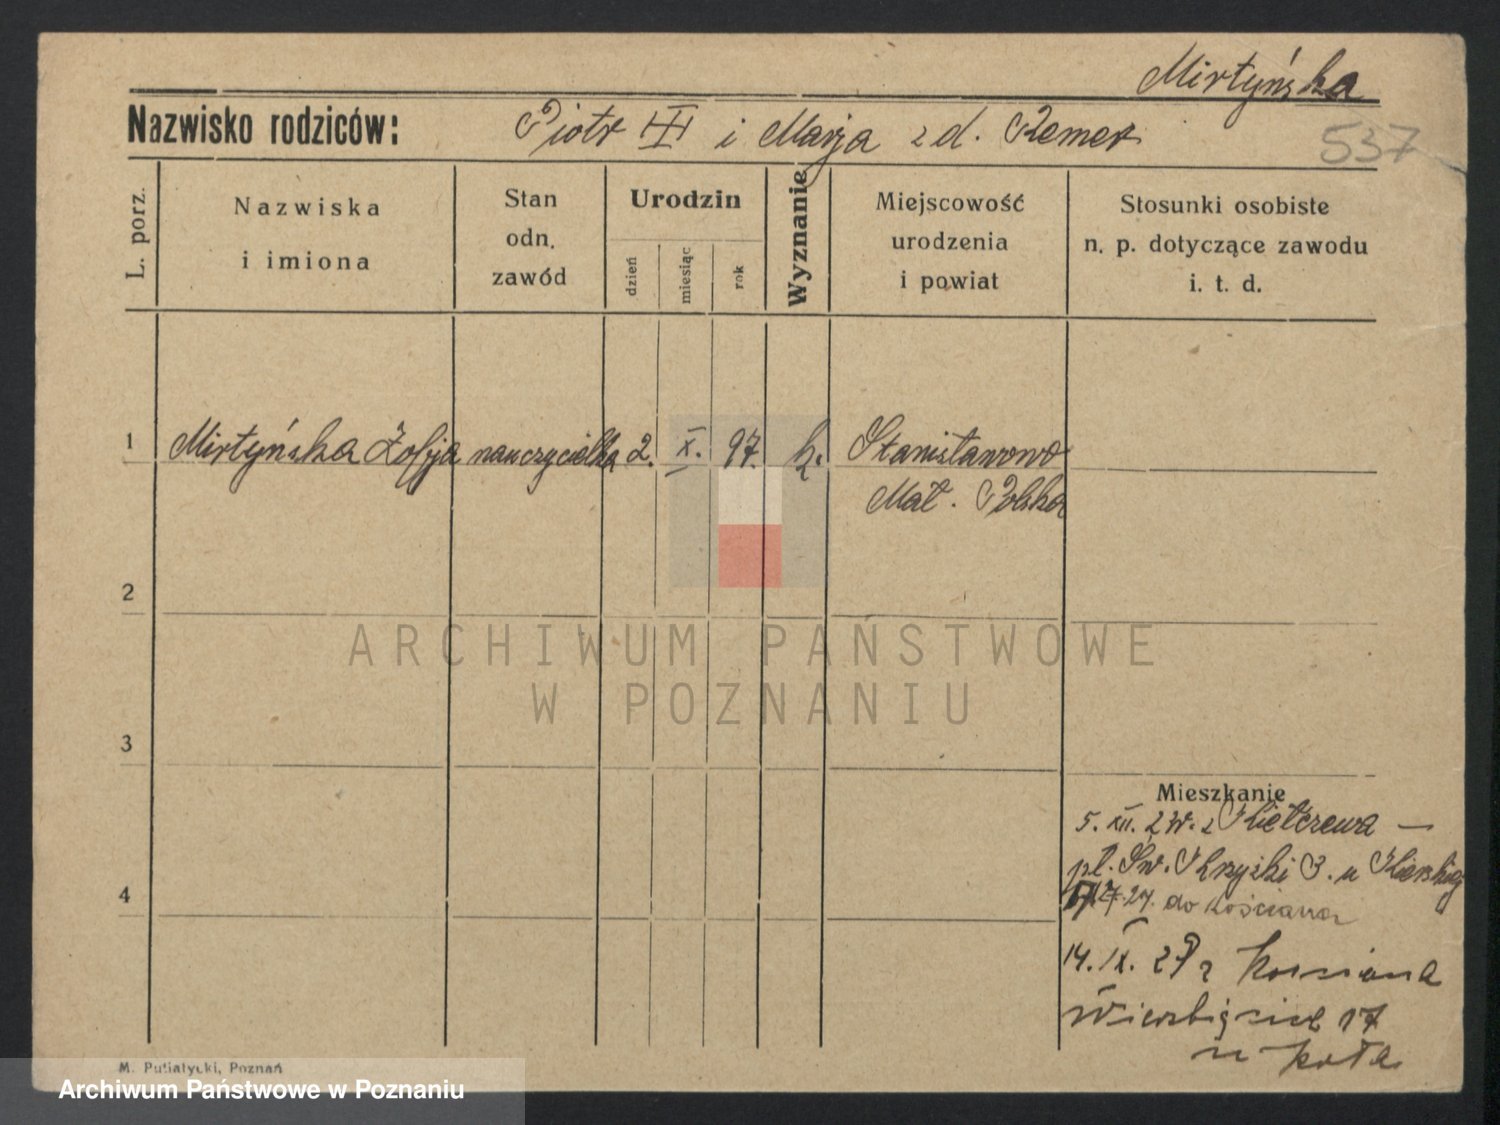 Mirtyńska
Nazwisko rodziców: Piotr i Marja z d. Remer
537
L. porz.
Nazwiska
i imiona
Stan
odn.
zawód
Urodzin
dzień
miesiąc
rok
Wyznanie
Miejscowość
urodzenia
i powiat
Stosunki osobiste
n. p. dotyczące zawodu
i. t. d.
1 Mirtyńska Zofja nauczycielka 2. X. 97. k. Stanisławowo
Mał. Polska
2
ARCHIWUM PAŃSTWOWE
W POZNANIU
3
Mieszkanie
5. XII. 23r. z Kiełczewa —
pl. Św. Krzyski 3. u
4
24. do Kościana
14. IX. 27 z Kościana
Wierzbięcice 17
u
M. Putiatycki, Poznań
Archiwum Państwowe w Poznaniu